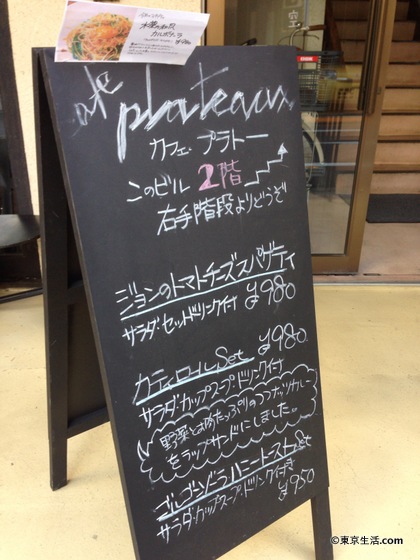 cafe plateaux
カフェ・プラトー
このビル 2階
右手階段よりどうぞ
ジョンのトマトチーズスパゲティ
サラダ・セットドリンク付 ¥980
カティロールSet ¥980
サラダ・カップスープ・ドリンク付
野菜とお肉たっぷりのココナッツカレー
をラップサンドにしました。
ゴルゴンゾーラハニートーストSet
サラダ・カップスープ・ドリンク付き
¥950
©東京生活.com